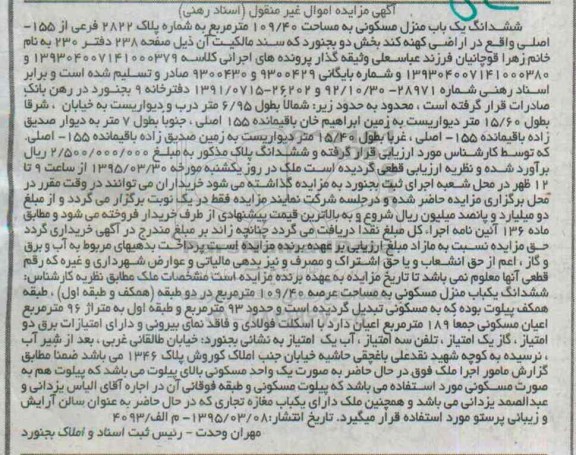 آگهی مزایده اموال غیر منقول (اسناد رهنی)
ششدانگ یک باب منزل مسکونی به مساحت ۱۰۹/۴۰ مترمربع به شماره پلاک ۲۸۲۲ فرعی از ۱۵۵-
اصلی واقع در اراضی کهنه کند بخش دو بجنورد که سند مالکیت آن ذیل صفحه ۲۳۸ دفتر ۲۳۰ به نام
خانم زهرا قوچانیان فرزند عباسعلی وثیقه گذار پرونده های اجرائی کلاسه ۱۳۹۳۰۴۰۰۷۱۴۱۰۰۰۳۷۹ و
۱۳۹۳۰۴۰۰۷۱۴۱۰۰۰۳۸۰ و شماره بایگانی ۹۳۰۰۴۲۹ و ۹۳۰۰۴۳۰ صادر و تسلیم شده است و برابر
اسناد رهنی شماره ۲۸۹۷۱- ۹۲/۱۰/۳۰ و ۲۶۲۰۲-۱۳۹۱/۰۷/۱۵ دفترخانه ۹ بجنورد در رهن بانک
صادرات قرار گرفته است ، محدود به حدود زیر: شمالا بطول ۶/۹۵ متر درب و دیواریست به خیابان ، شرقا
بطول ۱۵/۶۰ متر دیواریست به زمین ابراهیم خان باقیمانده ۱۵۵ اصلی ، جنوبا بطول ۷ متر به دیوار صدیق
زاده باقیمانده ۱۵۵- اصلی ، غربا بطول ۱۵/۴۰ متر دیواریست به زمین صدیق زاده باقیمانده ۱۵۵- اصلی.
که توسط کارشناس مورد ارزیابی قرار گرفته و ششدانگ پلاک مذکور به مبلغ ۲/۵۰۰/۰۰۰/۰۰۰ ریال
برآورد شده و نظریه ارزیابی قطعی گردیده است ملک در روز یکشنبه مورخه ۱۳۹۵/۰۳/۳۰ از ساعت ۹ تا
۱۲ ظهر در محل شعبه اجرای ثبت بجنورد به مزایده گذاشته می شود خریداران می توانند در وقت مقرر در
محل برگزاری مزایده حاضر شده و درجلسه شرکت نمایند مزایده فقط در یک نوبت برگزار می گردد و از مبلغ
دو میلیارد و پانصد میلیون ریال شروع و به بالاترین قیمت پیشنهادی از طرف خریدار فروخته می شود و مطابق
ماده ۱۳۶ آئین نامه اجرا، کل مبلغ نقدا دریافت می گردد چنانچه زائد بر مبلغ مندرج در آگهی خریداری گردد
حق مزایده نسبت به مازاد مبلغ ارزیابی بر عهده برنده مزایده است پرداخت بدهیهای مربوط به آب و برق
و گاز ، اعم از حق انشعاب و یا حق اشتراک و مصرف و نیز بدهی مالیاتی و عوارض شهرداری و غیره که رقم
قطعی آنها معلوم نمی باشد تا تاریخ مزایده به عهده برنده مزایده است مشخصات ملک مطابق نظریه کارشناس:
ششدانگ یکباب منزل مسکونی به مساحت عرصه ۱۰۹/۴۰ مترمربع در دو طبقه (همکف و طبقه اول) ، طبقه
همکف پیلوت بوده که به مسکونی تبدیل گردیده است و حدود ۹۳ مترمربع و طبقه اول به متراژ ۹۶ مترمربع
اعیان مسکونی جمعا ۱۸۹ مترمربع اعیان دارد با اسکلت فولادی و فاقد نمای بیرونی و دارای امتیازات برق دو
امتیاز ، گاز یک امتیاز ، تلفن سه امتیاز ، آب یک امتیاز به نشانی بجنورد: خیابان طالقانی غربی ، بعد از شیر آب
، نرسیده به کوچه شهید نقدعلی باغچقی حاشیه خیابان جنب املاک کوروش پلاک ۱۳۴۶ می باشد ضمنا مطابق
گزارش مامور اجرا ملک فوق در حال حاضر به صورت یک واحد مسکونی بالای پیلوت می باشد که پیلوت هم به
صورت مسکونی مورد استفاده می باشد که پیلوت مسکونی و طبقه فوقانی آن در اجاره آقای الیاس یزدانی و
عبدالصمد یزدانی می باشد و همچنین ملک دارای یکباب مغازه تجاری که در حال حاضر به عنوان سالن آرایش
و زیبائی پرستو مورد استفاده قرار میگیرد. تاریخ انتشار:۱۳۹۵/۰۳/۰۸- م الف/۴۰۹۳
مهران وحدت - رئیس ثبت اسناد و املاک بجنورد